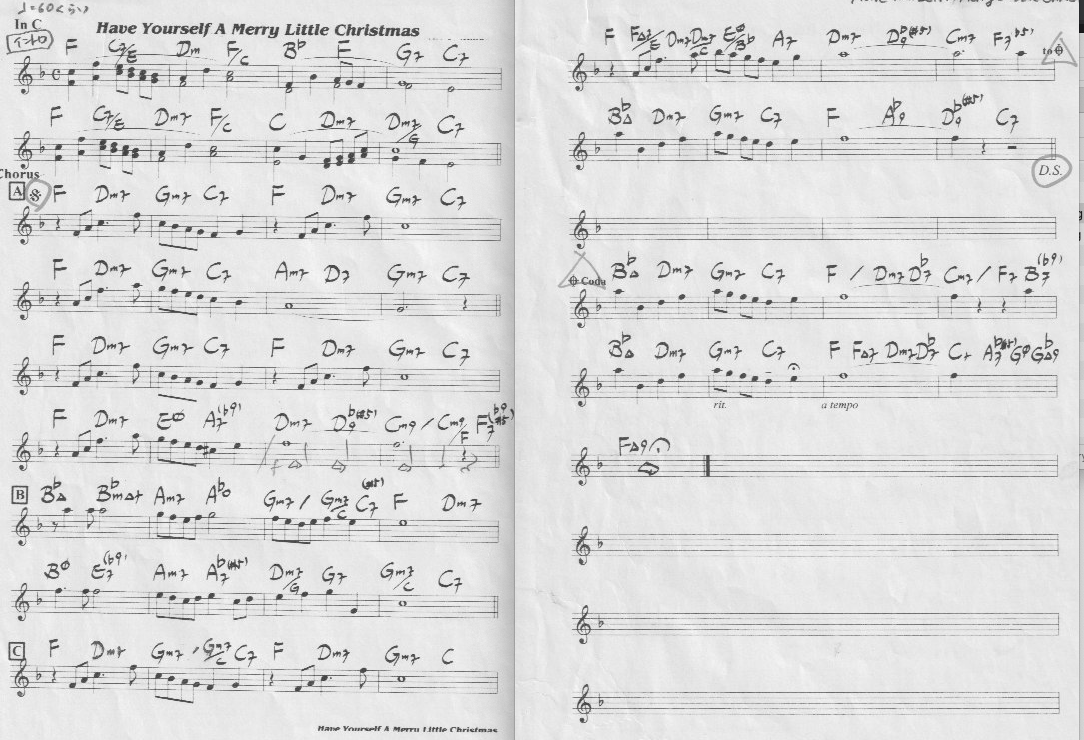 ♩=60くらい
In C
Have Yourself A Merry Little Christmas
イントロ
F C7/E Dm F/C B♭ F G7 C7
F C7/E Dm7 F/C C Dm7 Dm7/G C7
Chorus
A F Dm7 Gm7 C7 F Dm7 Gm7 C7
F Dm7 Gm7 C7 Am7 D7 Gm7 C7
F Dm7 Gm7 C7 F Dm7 Gm7 C7
F Dm7 EØ A7(♭9) Dm7 D♭9(#5) Cm9 / Cm9/F F7(♭9 #5)
B B♭△ B♭m△7 Am7 A♭o Gm7 / Gm7/C C7(#5) F Dm7
BØ E7(♭9) Am7 A♭7(#5) Dm7/G G7 Gm7/C C7
C F Dm7 Gm7 / Gm7/C C7 F Dm7 Gm7 C
Have Yourself A Merry Little Christmas
F F△7/E Dm7 Dm7/C EØ/B♭ A7 Dm7 D♭9(#5) Cm7 F7(♭5) to
B♭△ Dm7 Gm7 C7 F A♭9 D♭9(#5) C7
D.S.
Coda
B♭△ Dm7 Gm7 C7 F / Dm7 D♭7 Cm7 / F7 B7(♭9)
B♭△ Dm7 Gm7 C7 F F△7 Dm7 D♭7 GØ G♭△9
rit. a tempo
F△9